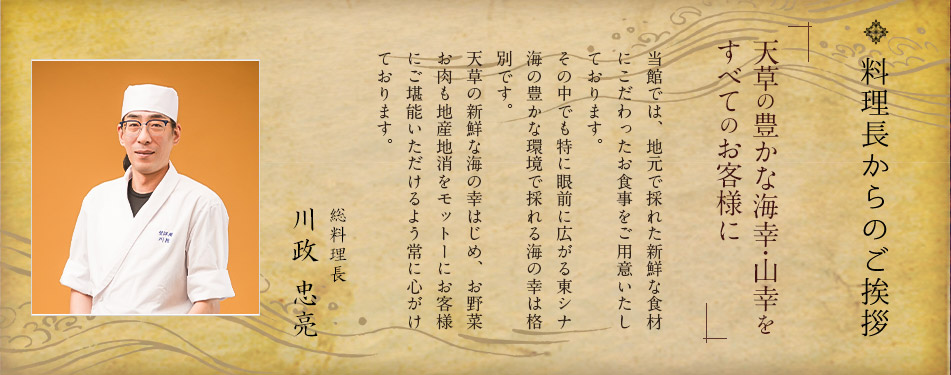 料理長からのご挨拶
天草の豊かな海幸・山幸を
すべてのお客様に
当館では、地元で採れた新鮮な食材
にこだわったお食事をご用意いたし
ております。
その中でも特に眼前に広がる東シナ
海の豊かな環境で採れる海の幸は格
別です。
天草の新鮮な海の幸はじめ、お野菜
お肉も地産地消をモットーにお客様
にご堪能いただけるよう常に心がけ
ております。
総料理長
川政 忠亮